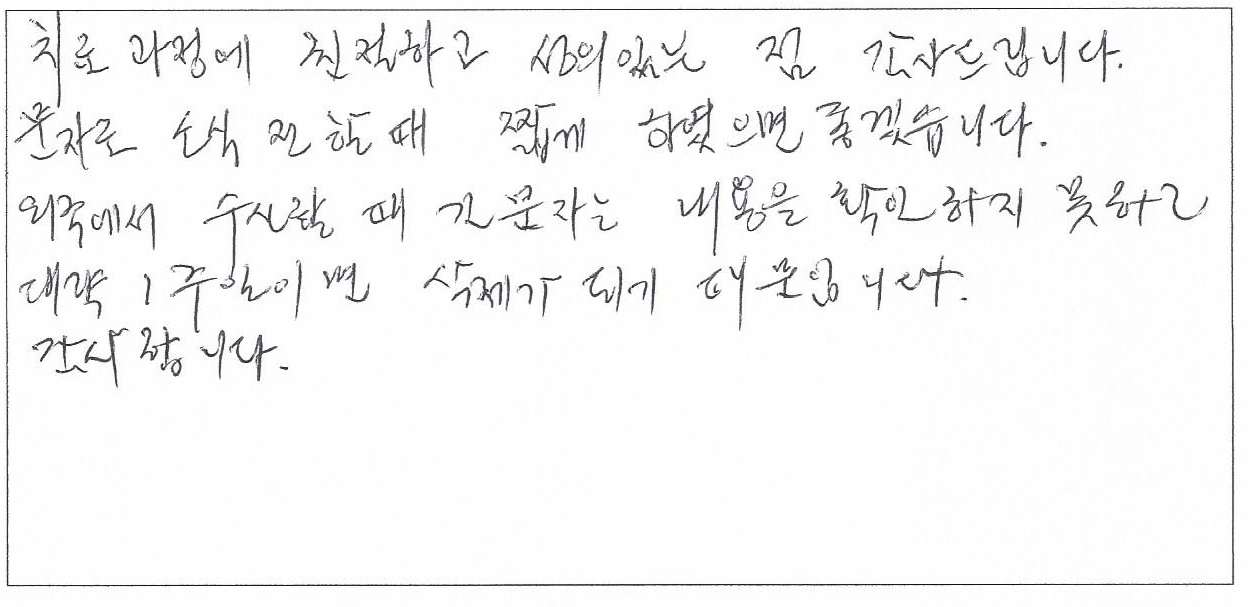 치료 과정에 친절하고 성의있는 점 감사드립니다.
문자로 소식 전할때 짧게 하였으면 좋겠습니다.
외국에서 수신할 때 긴 문자는 내용을 확인하지 못하고
대략 1주일이면 삭제가 되기 때문입니다.
감사합니다.